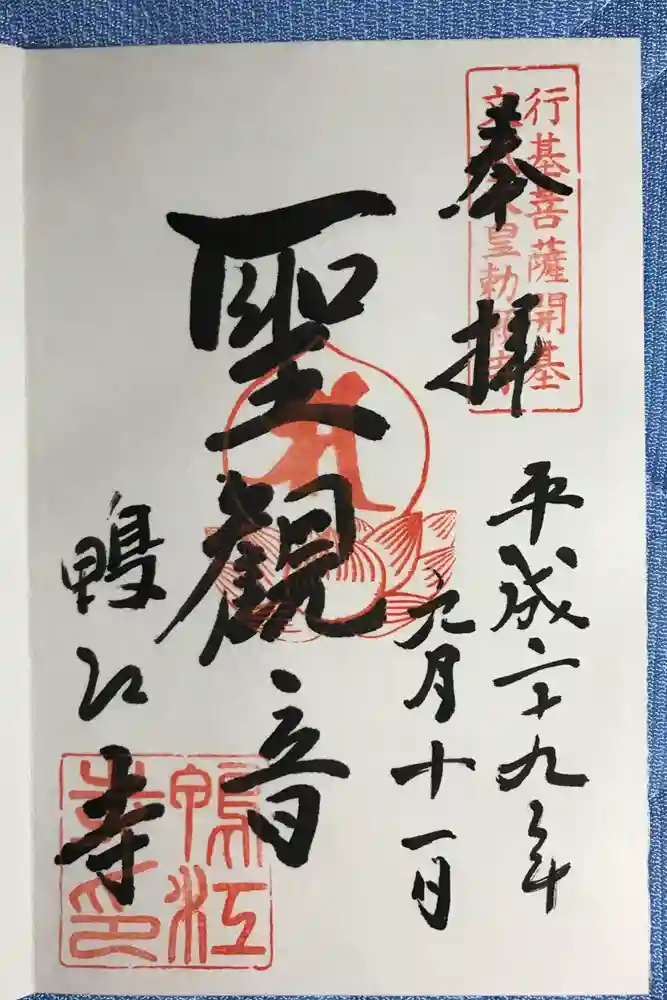 行基菩薩開基
文武天皇勅願寺
奉拝
平成二十九年
六月十一日
聖観音
鴨江寺
鴨江
寺印